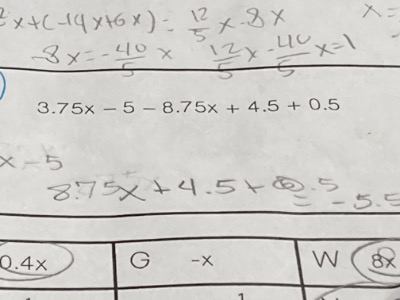 ²x+(-14x+6x) = 12/5 x - 8x x =
-8x = -40/5 x 12/5 x - 40/5 x = 1
3.75x − 5 − 8.75x + 4.5 + 0.5
x - 5
8.75x + 4.5 + 0.5
= -5.5
0.4x G -x W 8x